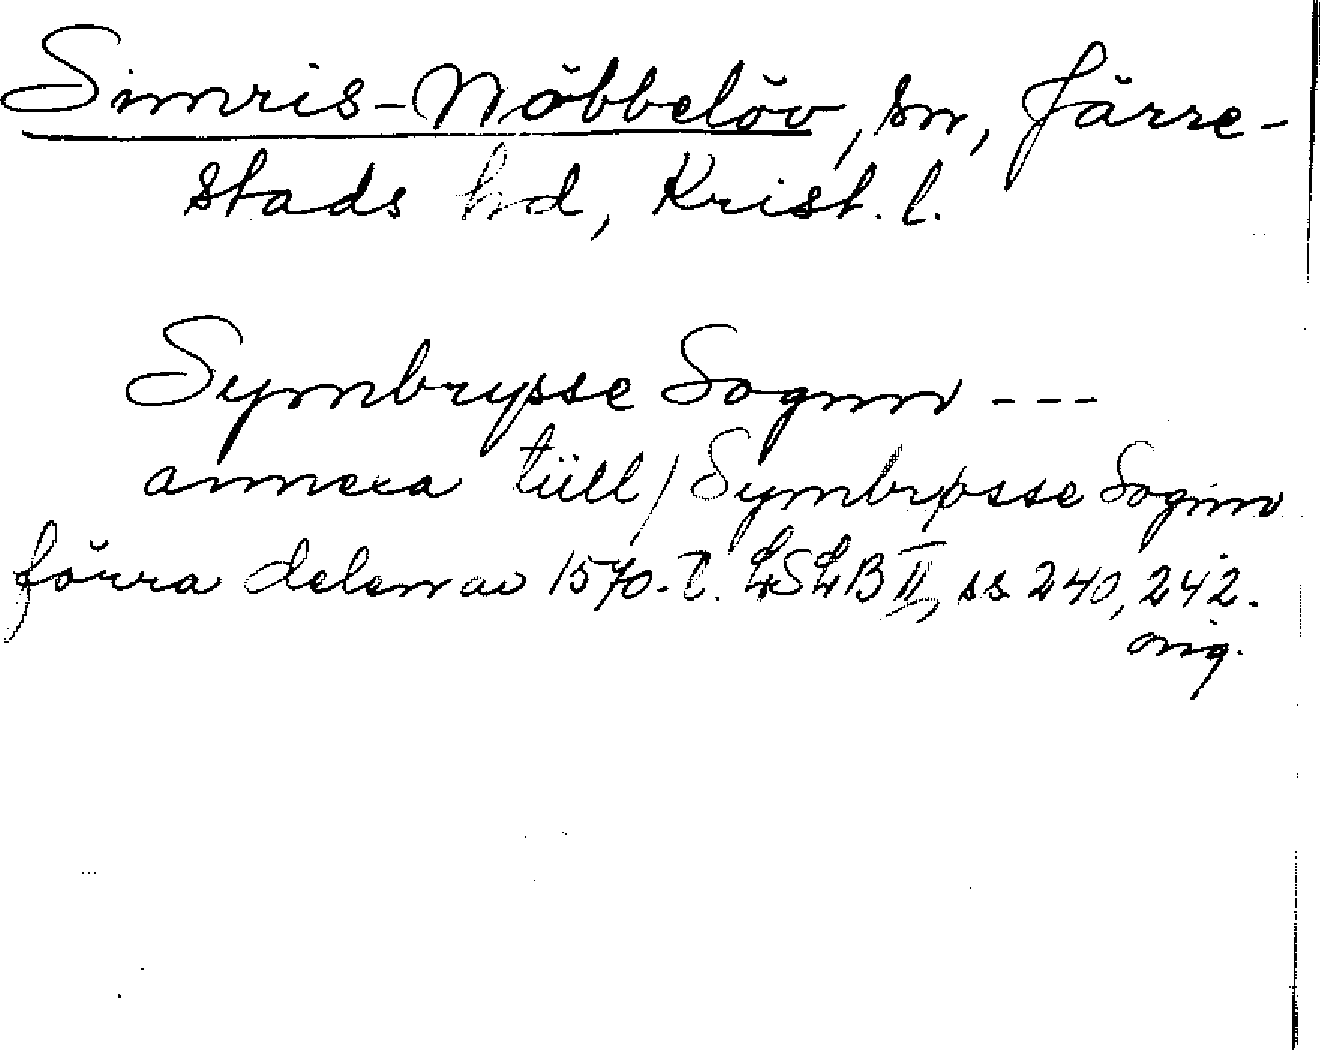 Simris-Nöbbelöv, sn, Järre-
stads hd, Krist. l.
Symbrysse Sognn ---
annexa tiill / Symbrysse Sognn
förra delen av 1570-t. LSLB II, ss 240, 242.
orig.